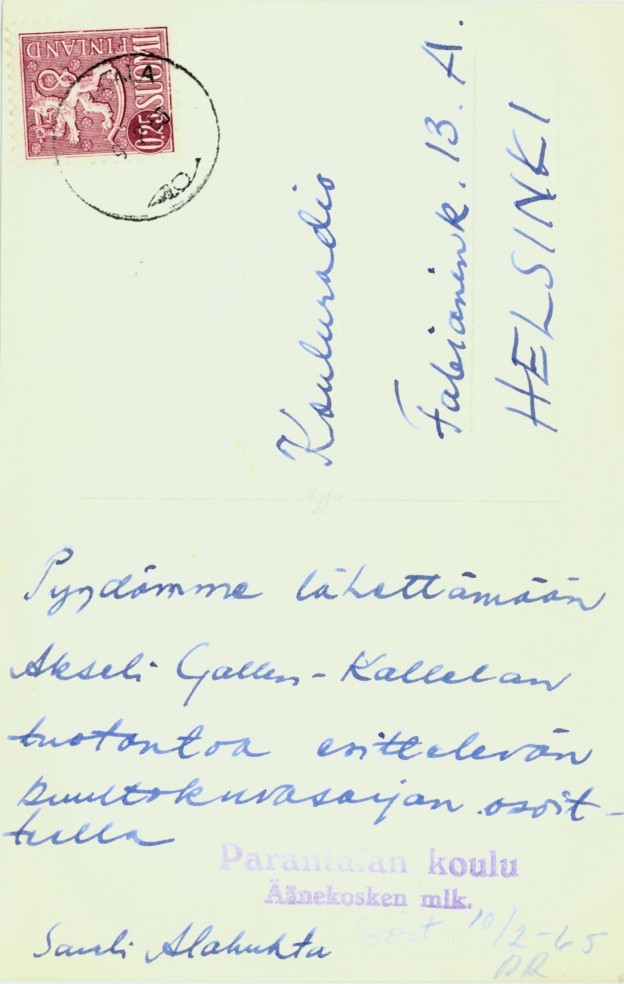 FINLAND
8
0.25 SUOMI
Kouluradio
Fabianink. 13. A.
HELSINKI
Pyydämme lähettämään
Akseli Gallen-Kallelan
tuotantoa esittelevän
kuultokuvasarjan osoit-
teella
Parantalan koulu
Äänekosken mlk.
Sauli Alahuhta
10/2-65